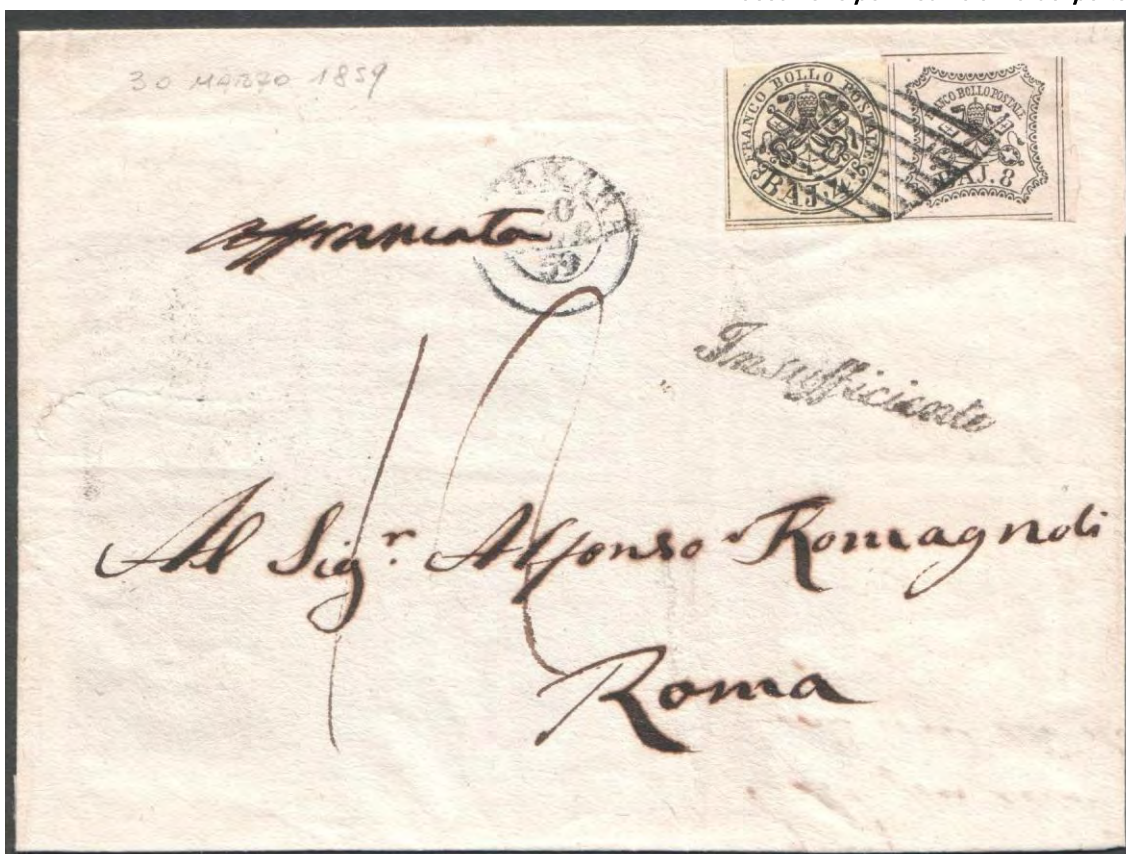 30 MARZO 1859
FRANCO BOLLO POSTALE
BAJ. 4
FRANCO BOLLO POSTALE
BAJ. 8
affrancata
59
Insufficiente
Al Sig.r Alfonso Romagnoli
Roma